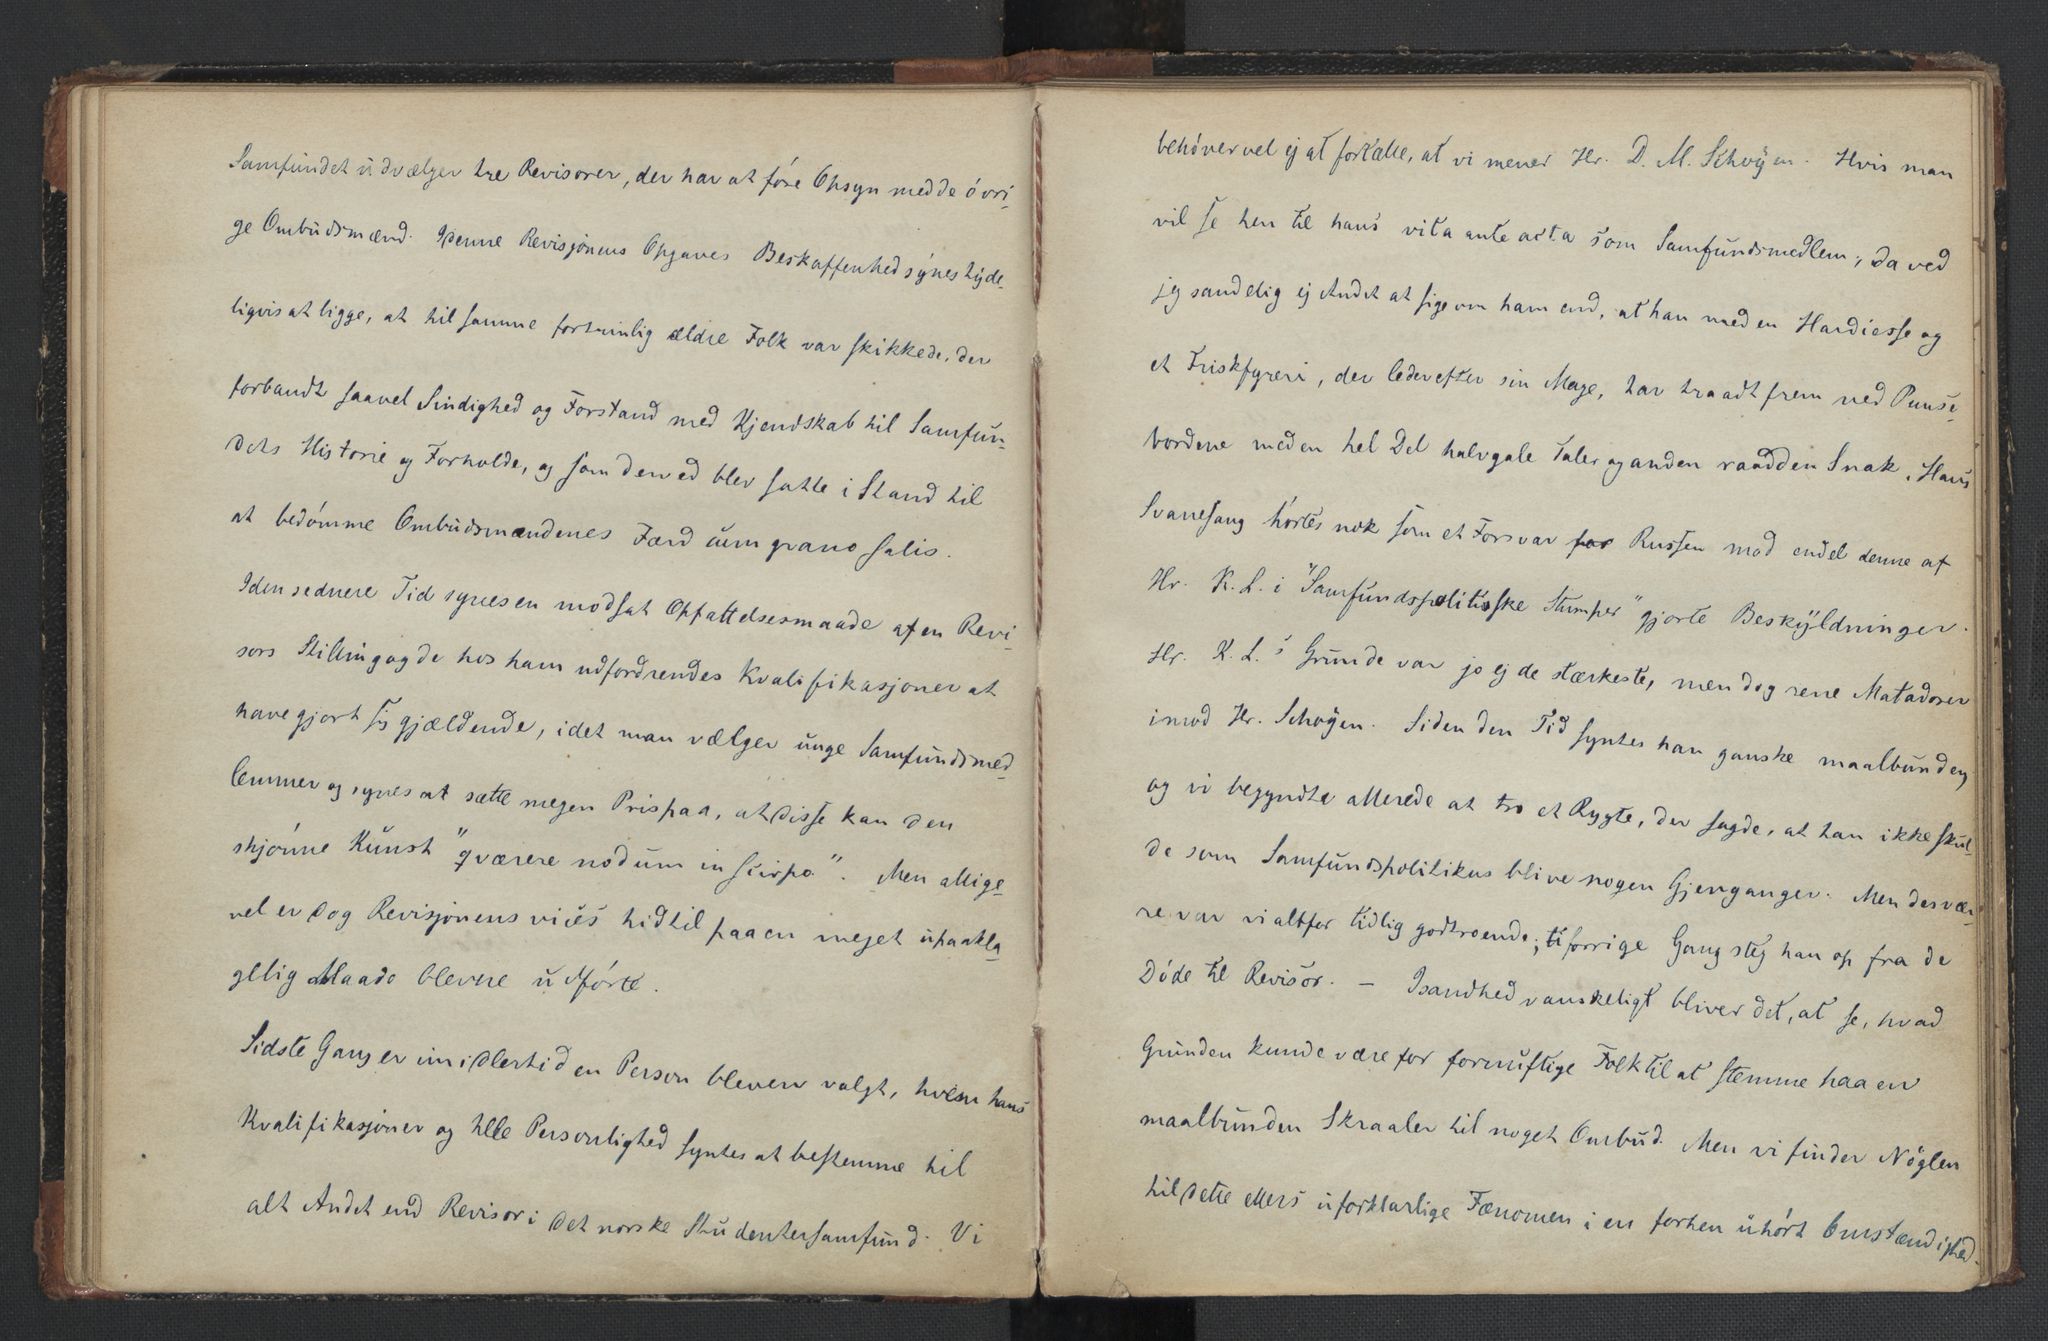 Samfundet udvælger tre Revisorer, der har at føre Opsyn med de øvri-
ge Ombudsmænd. I denne Revisjonens Opgaves Beskaffenhed synes tyde-
ligvis at ligge, at til samme fortrinlig ældre Folk var skikkede, der
forbandt saavel Sindighed og Forstand med Kjendskab til Samfun-
dets Historie og Forholde, og som derved blev satte i Stand til
at bedømme Ombudsmændenes Færd cum grano salis.
I den sednere Tid synes en modsat Opfattelsesmaade af en Revi-
sors Stilling og de hos ham udfordrendes Kvalifikasjoner at
have gjort sig gjældende, idet man vælger unge Samfundsmed-
lemmer og synes at sætte megen Pris paa, at disse kan den
skjønne Kunst "qværere nodum in scirpo". Men allige-
vel er dog Revisjonens vices hidtil paa en meget upaakla-
gelig Maade blevne udførte.
Sidste Gang er imidlertid en Person bleven valgt, hvem hans
Kvalifikasjoner og hele Personlighed syntes at bestemme til
alt Andet end Revisor i det norske Studentersamfund. Vi
behøver vel ej at fortælle, at vi mener Hr. D. M. Schøyen. Hvis man
vil se hen til hans vita ante acta som Samfundsmedlem, da ved
jeg sandelig ej Andet at sige om ham end, at han med en Hardiesse og
et Friskfyreri, der leder efter sin Mage, har traadt frem ved Punse-
bordene med en hel Del halvgale Taler og anden raadden Snak. Hans
Svanesang hørtes nok som et Forsvar for Russen mod endel denne af
Hr. K. L. i "Samfundspolitiske Stumper" gjorte Beskyldninger.
Hr. K. L.s Grunde var jo ej de stærkeste, men dog rene Matadorer
imod Hr. Schøyen. Siden den Tid syntes han ganske maalbunden,
og vi begyndte allerede at tro et Rygte, der sagde, at han ikke skul-
de som Samfundspolitikus blive nogen Gjenganger. Men desvær-
re var vi altfor tidlig godtroende; ti forrige Gang steg han op fra de
Døde til Revisor. – I sandhed vanskeligt bliver det, at se, hvad
Grunden kunde være for fornuftige Folk til at stemme paa en
maalbunden Skraaler til noget Ombud. Men vi finder Nøglen
til dette ellers uforklarlige Fænomen i en forhen uhørt Omstændighed.